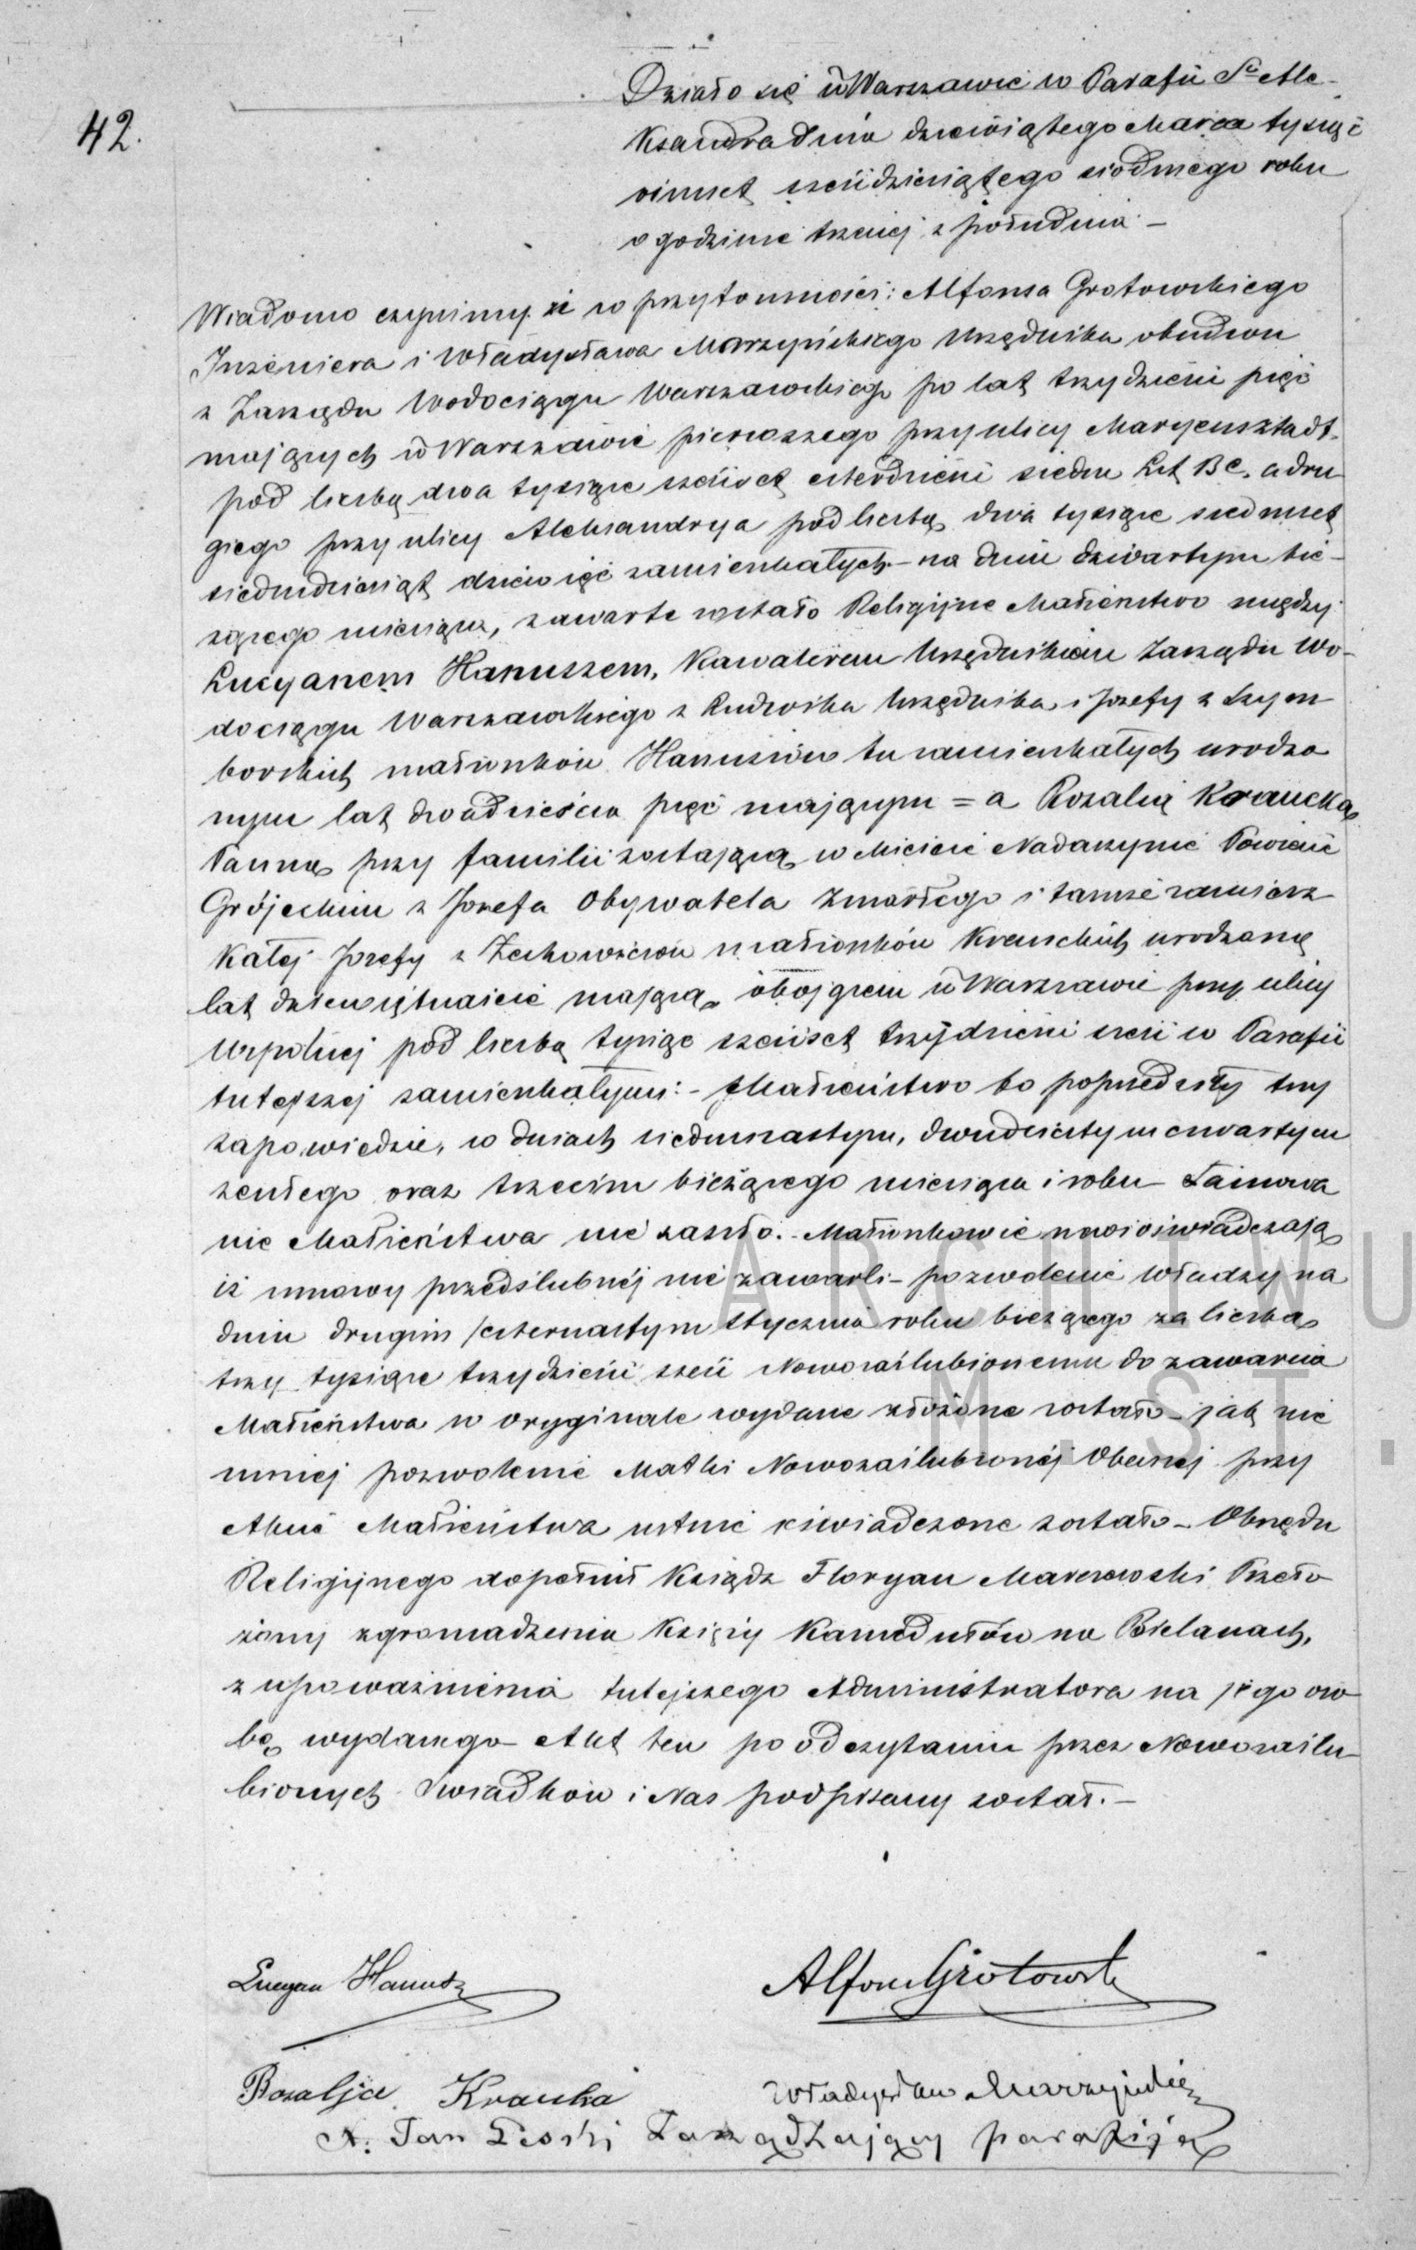 42.
Działo się w Warszawie w Parafii Sgo Ale-
ksandra dnia dziewiątego Marca tysiąc
ośmset sześćdziesiątego siódmego roku
o godzinie trzeciej z południa –
Wiadomo czynimy że w przytomności: Alfonsa Grotowskiego
Inżeniera i Władysława Urzędnika obudwu
z Zarządu Wodociągu Warszawskiego po lat trzydzieści pięć
mających w Warszawie pierwszego przy ulicy Maryensztadt
pod liczbą dwa tysiące sześćset czterdzieści siedm Lit BC. a dru
giego przy ulicy Aleksandrya pod liczbą dwa tysiące siedmset
siedmdziesiąt dziewięć zamieszkałych – na dniu bie-
żącego miesiąca, zawarte zostało Religijne Małżeństwo między
Lucyanem Hanuszem, Kawalerem Urzędnikiem Zarządu Wo-
dociągu Warszawskiego z Ludwika Urzędnika i Józefy z Szym
borskich małżonków Hanuszów tu zamieszkałych urodzo
nym lat dwadzieścia pięć mającym = a Rozalią Krauską
Panną przy familii zostającą w Mieście Nadarzynie Powiecie
Grójeckim z Józefa Obywatela zmarłego i tamże zamiesz
kałej Józefy z małżonków Krauskich urodzoną
lat dziewiętnaście mającą, obojgiem w Warszawie przy ulicy
Wspólnej pod liczbą tysiąc sześćset trzydzieści sześć w Parafii
tutejszej zamieszkałymi: – Małżeństwo to poprzedziły trzy
zapowiedzie, w dniach siedmnastym, dwudziestym czwartym
zeszłego oraz trzecim bieżącego miesiąca i roku – Tamowa
nie Małżeństwa nie zaszło. – Małżonkowie nowi oświadczają
iż umowy przedślubnéj nie zawarli – pozwolenie Władzy na
dniu drugim / czternastym Stycznia roku bieżącego za liczbą
trzy tysiące trzydzieści sześć Nowozaślubionemu do zawarcia
Małżeństwa w oryginale wydane złożone zostało – jak nie
mniej pozwolenie Matki Nowozaślubionéj Obecnej przy
Akcie Małżeństwa ustnie oświadczone zostało – Obrzędu
Religijnego dopełnił Ksiądz Floryan Przeło
żony zgromadzenia Księży Kamedułów na Bielanach,
z upoważnienia tutejszego Administratora na jego oso
bę wydanego – Akt ten po odczytaniu przez Nowozaślu
bionych Świadków i Nas podpisany został. –
Lucyan Hanusz
Alfons Grotowski
Rozalja Krauska
Władysław
X. Jan Zarządzający parafiją
ARCHIWU
M.ST.